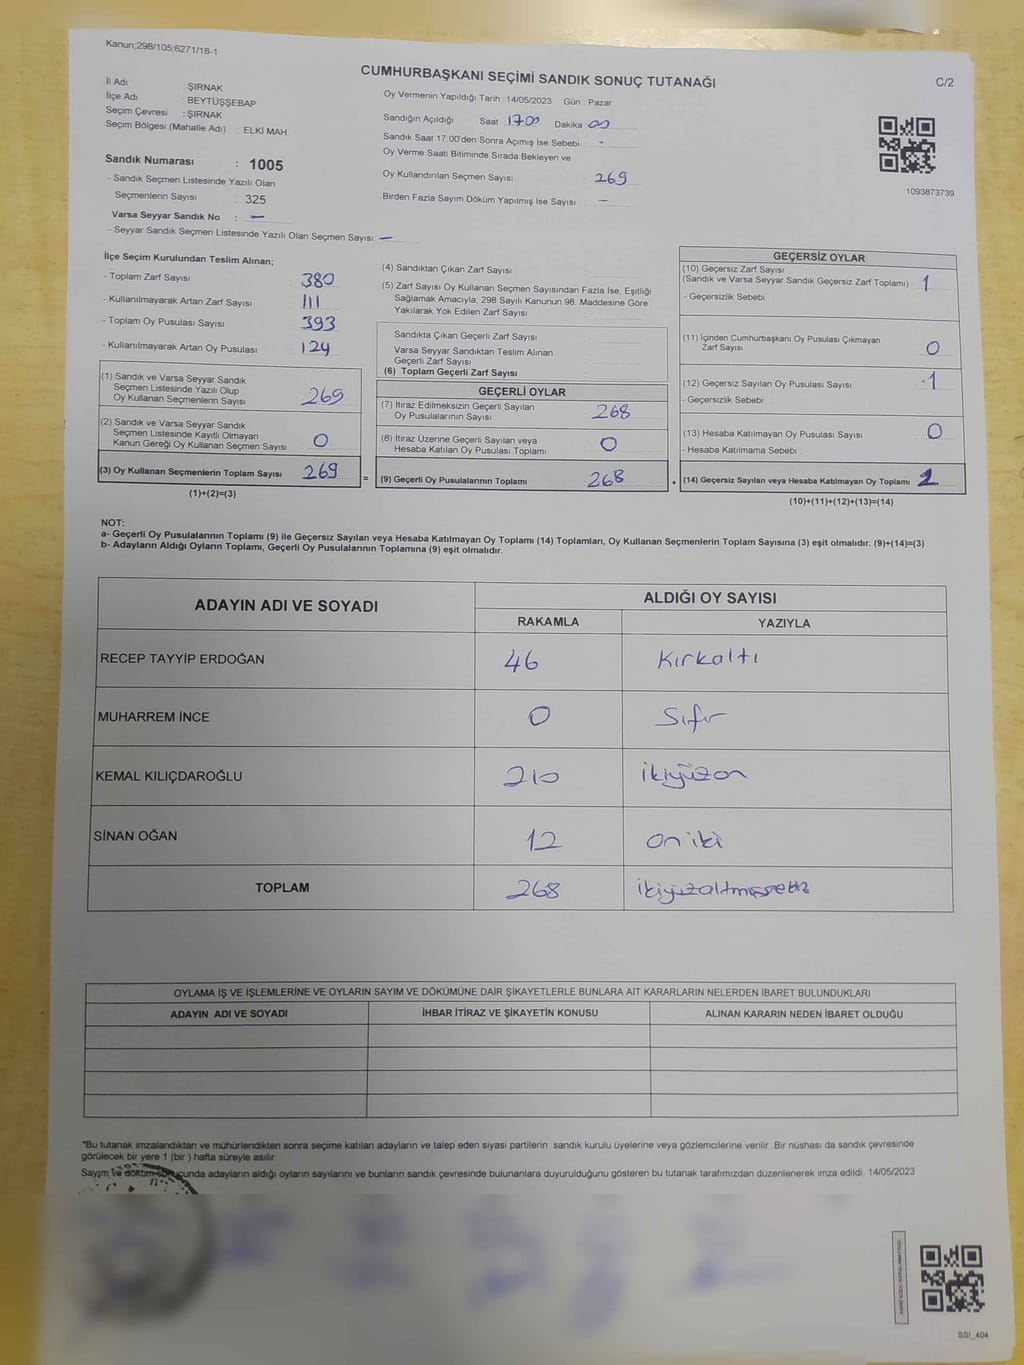 Kanun;298/105;6271/18-1
CUMHURBAŞKANI SEÇİMİ SANDIK SONUÇ TUTANAĞI
C/2
İl Adı ŞIRNAK
İlçe Adı BEYTÜŞŞEBAP
Seçim Çevresi : ŞIRNAK
Seçim Bölgesi (Mahalle Adı) : ELKİ MAH.
Sandık Numarası : 1005
- Sandık Seçmen Listesinde Yazılı Olan
Seçmenlerin Sayısı : 325
Varsa Seyyar Sandık No : —
- Seyyar Sandık Seçmen Listesinde Yazılı Olan Seçmen Sayısı: —
Oy Vermenin Yapıldığı Tarih : 14/05/2023 Gün : Pazar
Sandığın Açıldığı Saat : 1700 Dakika : 00
Sandık Saat 17:00'den Sonra Açımış İse Sebebi : -
Oy Verme Saati Bitiminde Sırada Bekleyen ve
Oy Kullandırılan Seçmen Sayısı : 269
Birden Fazla Sayım Döküm Yapılmış İse Sayısı : —
1093873739
İlçe Seçim Kurulundan Teslim Alınan;
- Toplam Zarf Sayısı : 380
- Kullanılmayarak Artan Zarf Sayısı : 111
- Toplam Oy Pusulası Sayısı : 393
- Kullanılmayarak Artan Oy Pusulası : 124
(1) Sandık ve Varsa Seyyar Sandık
Seçmen Listesinde Yazılı Olup
Oy Kullanan Seçmenlerin Sayısı 269
(2) Sandık ve Varsa Seyyar Sandık
Seçmen Listesinde Kayıtlı Olmayan
Kanun Gereği Oy Kullanan Seçmen Sayısı 0
(3) Oy Kullanan Seçmenlerin Toplam Sayısı 269 =
(1)+(2)=(3)
(4) Sandıktan Çıkan Zarf Sayısı :
(5) Zarf Sayısı Oy Kullanan Seçmen Sayısından Fazla İse, Eşitliği
Sağlamak Amacıyla, 298 Sayılı Kanunun 98. Maddesine Göre
Yakılarak Yok Edilen Zarf Sayısı :
Sandıkta Çıkan Geçerli Zarf Sayısı :
Varsa Seyyar Sandıktan Teslim Alınan
Geçerli Zarf Sayısı :
(6) Toplam Geçerli Zarf Sayısı
GEÇERLİ OYLAR
(7) İtiraz Edilmeksizin Geçerli Sayılan
Oy Pusulalarının Sayısı : 268
(8) İtiraz Üzerine Geçerli Sayılan veya
Hesaba Katılan Oy Pusulası Toplamı : 0
(9) Geçerli Oy Pusulalarının Toplamı 268 +
GEÇERSİZ OYLAR
(10) Geçersiz Zarf Sayısı
(Sandık ve Varsa Seyyar Sandık Geçersiz Zarf Toplamı) : 1
- Geçersizlik Sebebi :
(11) İçinden Cumhurbaşkanı Oy Pusulası Çıkmayan
Zarf Sayısı : 0
(12) Geçersiz Sayılan Oy Pusulası Sayısı : 1
- Geçersizlik Sebebi :
(13) Hesaba Katılmayan Oy Pusulası Sayısı : 0
- Hesaba Katılmama Sebebi :
(14) Geçersiz Sayılan veya Hesaba Katılmayan Oy Toplamı
(10)+(11)+(12)+(13)=(14)
NOT:
a- Geçerli Oy Pusulalarının Toplamı (9) ile Geçersiz Sayılan veya Hesaba Katılmayan Oy Toplamı (14) Toplamları, Oy Kullanan Seçmenlerin Toplam Sayısına (3) eşit olmalıdır. (9)+(14)=(3)
b- Adayların Aldığı Oyların Toplamı, Geçerli Oy Pusulalarının Toplamına (9) eşit olmalıdır.
ADAYIN ADI VE SOYADI ALDIĞI OY SAYISI
RAKAMLA YAZIYLA
RECEP TAYYİP ERDOĞAN 46 Kırkaltı
MUHARREM İNCE 0 Sıfır
KEMAL KILIÇDAROĞLU 210 ikiyüzon
SİNAN OĞAN 12 on iki
TOPLAM 268 ikiyüzaltmışsekiz
OYLAMA İŞ VE İŞLEMLERİNE VE OYLARIN SAYIM VE DÖKÜMÜNE DAİR ŞİKAYETLERLE BUNLARA AİT KARARLARIN NELERDEN İBARET BULUNDUKLARI
ADAYIN ADI VE SOYADI İHBAR İTİRAZ VE ŞİKAYETİN KONUSU ALINAN KARARIN NEDEN İBARET OLDUĞU
*Bu tutanak imzalandıktan ve mühürlendikten sonra seçime katılan adayların ve talep eden siyasi partilerin sandık kurulu üyelerine veya gözlemcilerine verilir. Bir nüshası da sandık çevresinde
görülecek bir yere 1 (bir ) hafta süreyle asılır.
Sayım ve döküm sonucunda adayların aldığı oyların sayılarını ve bunların sandık çevresinde bulunanlara duyurulduğunu gösteren bu tutanak tarafımızdan düzenlenerek imza edildi. 14/05/2023
SSI_404